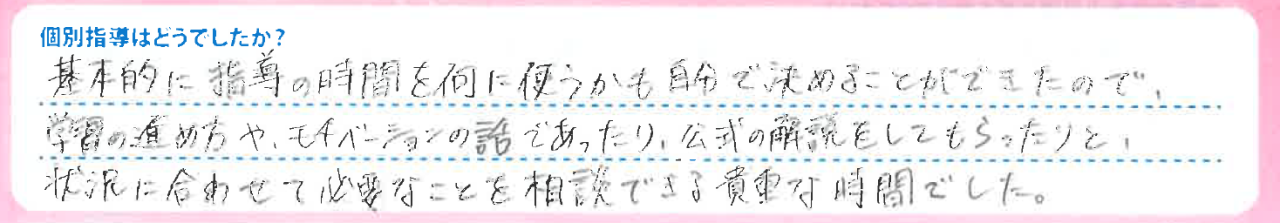 個別指導はどうでしたか?
基本的に指導の時間を何に使うかも自分で決めることができたので、
学習の進め方や、モチベーションの話であったり、公式の解説をしてもらったりと、
状況に合わせて必要なことを相談できる貴重な時間でした。